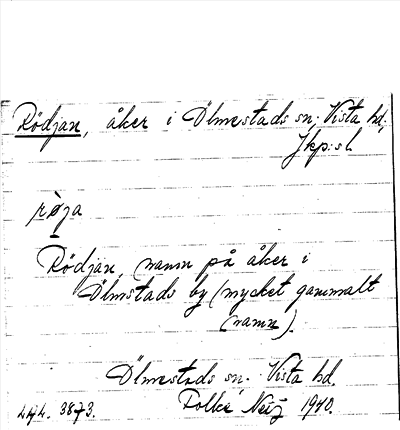 Rödjan, åker i Ölmestads sn; Vista hd,
Jkp:s l.
röja
Rödjan, namn på åker i
Ölmstads by (mycket gammalt
namn).
Ölmestads sn. Vista hd.
Folke 1940.
3873.